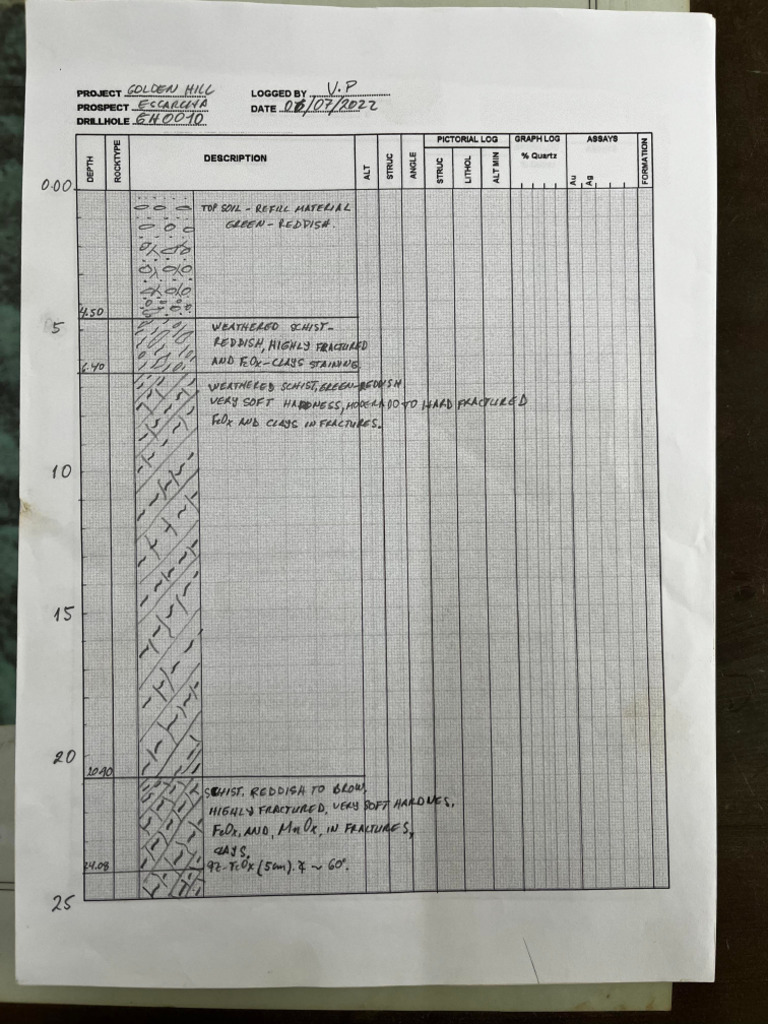 PROJECT GOLDEN HILL
LOGGED BY V.P
PROSPECT ESCARCHA
DATE 06/07/2022
DRILLHOLE GH0010
DEPTH
ROCKTYPE
DESCRIPTION
ALT
STRUC
ANGLE
PICTORIAL LOG
STRUC
LITHOL
ALT MIN
GRAPH LOG
% Quartz
ASSAYS
Au
Ag
FORMATION
0.00
TOP SOIL - REFILL MATERIAL
GREEN - REDDISH.
4.50
5
WEATHERED SCHIST-
REDDISH, HIGHLY FRACTURED
AND FeOx-CLAYS STAINING,
6.40
WEATHERED SCHIST, GREEN-REDDISH
VERY SOFT HARDNESS, MODERADO TO HARD FRACTURED
FeOx AND CLAYS IN FRACTURES.
10
15
20
20.90
SCHIST. REDDISH TO BROW,
HIGHLY FRACTURED, VERY SOFT HARDNES,
FeOx, AND, MnOx, IN FRACTURES,
CLAYS,
24.08
qz-FeOx (5cm). ∡ ~ 60°.
25